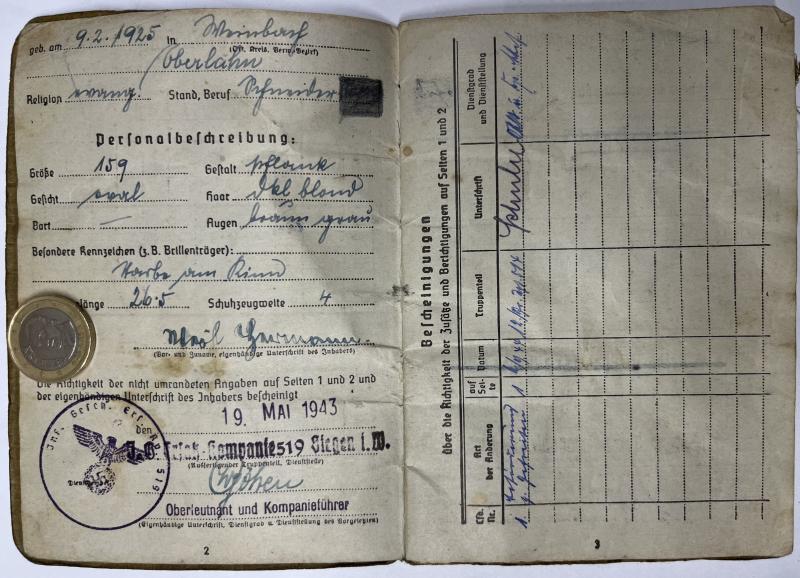 geb. am 9.2.1925 in Weinbach
(Ort, Kreis, Verw.-Bezirk)
Oberlahn
Religion evang. Stand, Beruf Schneider
Personalbeschreibung:
Größe 159 Gestalt schlank
Gesicht oval Haar dkl. blond
Bart — Augen braun grau
Besondere Kennzeichen (z.B. Brillenträger):
Narbe am Kinn
länge 26.5 Schuhzeugweite 4
Hermann
(Vor- und Zuname, eigenhändige Unterschrift des Inhabers)
Die Richtigkeit der nicht umrandeten Angaben auf Seiten 1 und 2 und
der eigenhändigen Unterschrift des Inhabers bescheinigt
den 19. MAI 1943
J. G. Ersatz-Kompanie 519 Siegen i.W.
(Ausfertigender Truppenteil, Dienststelle)
Oberleutnant und Kompanieführer
(Eigenhändige Unterschrift, Dienstgrad u. Dienststellung des Vorgesetzten)
Inf. Gesch. Ers. Kp. 519
2
Bescheinigungen
über die Richtigkeit der Zusätze und Berichtigungen auf Seiten 1 und 2
Lfd. Nr. Art der Änderung auf Seite Datum Truppenteil Unterschrift Dienstgrad und Dienststellung
1 1
3